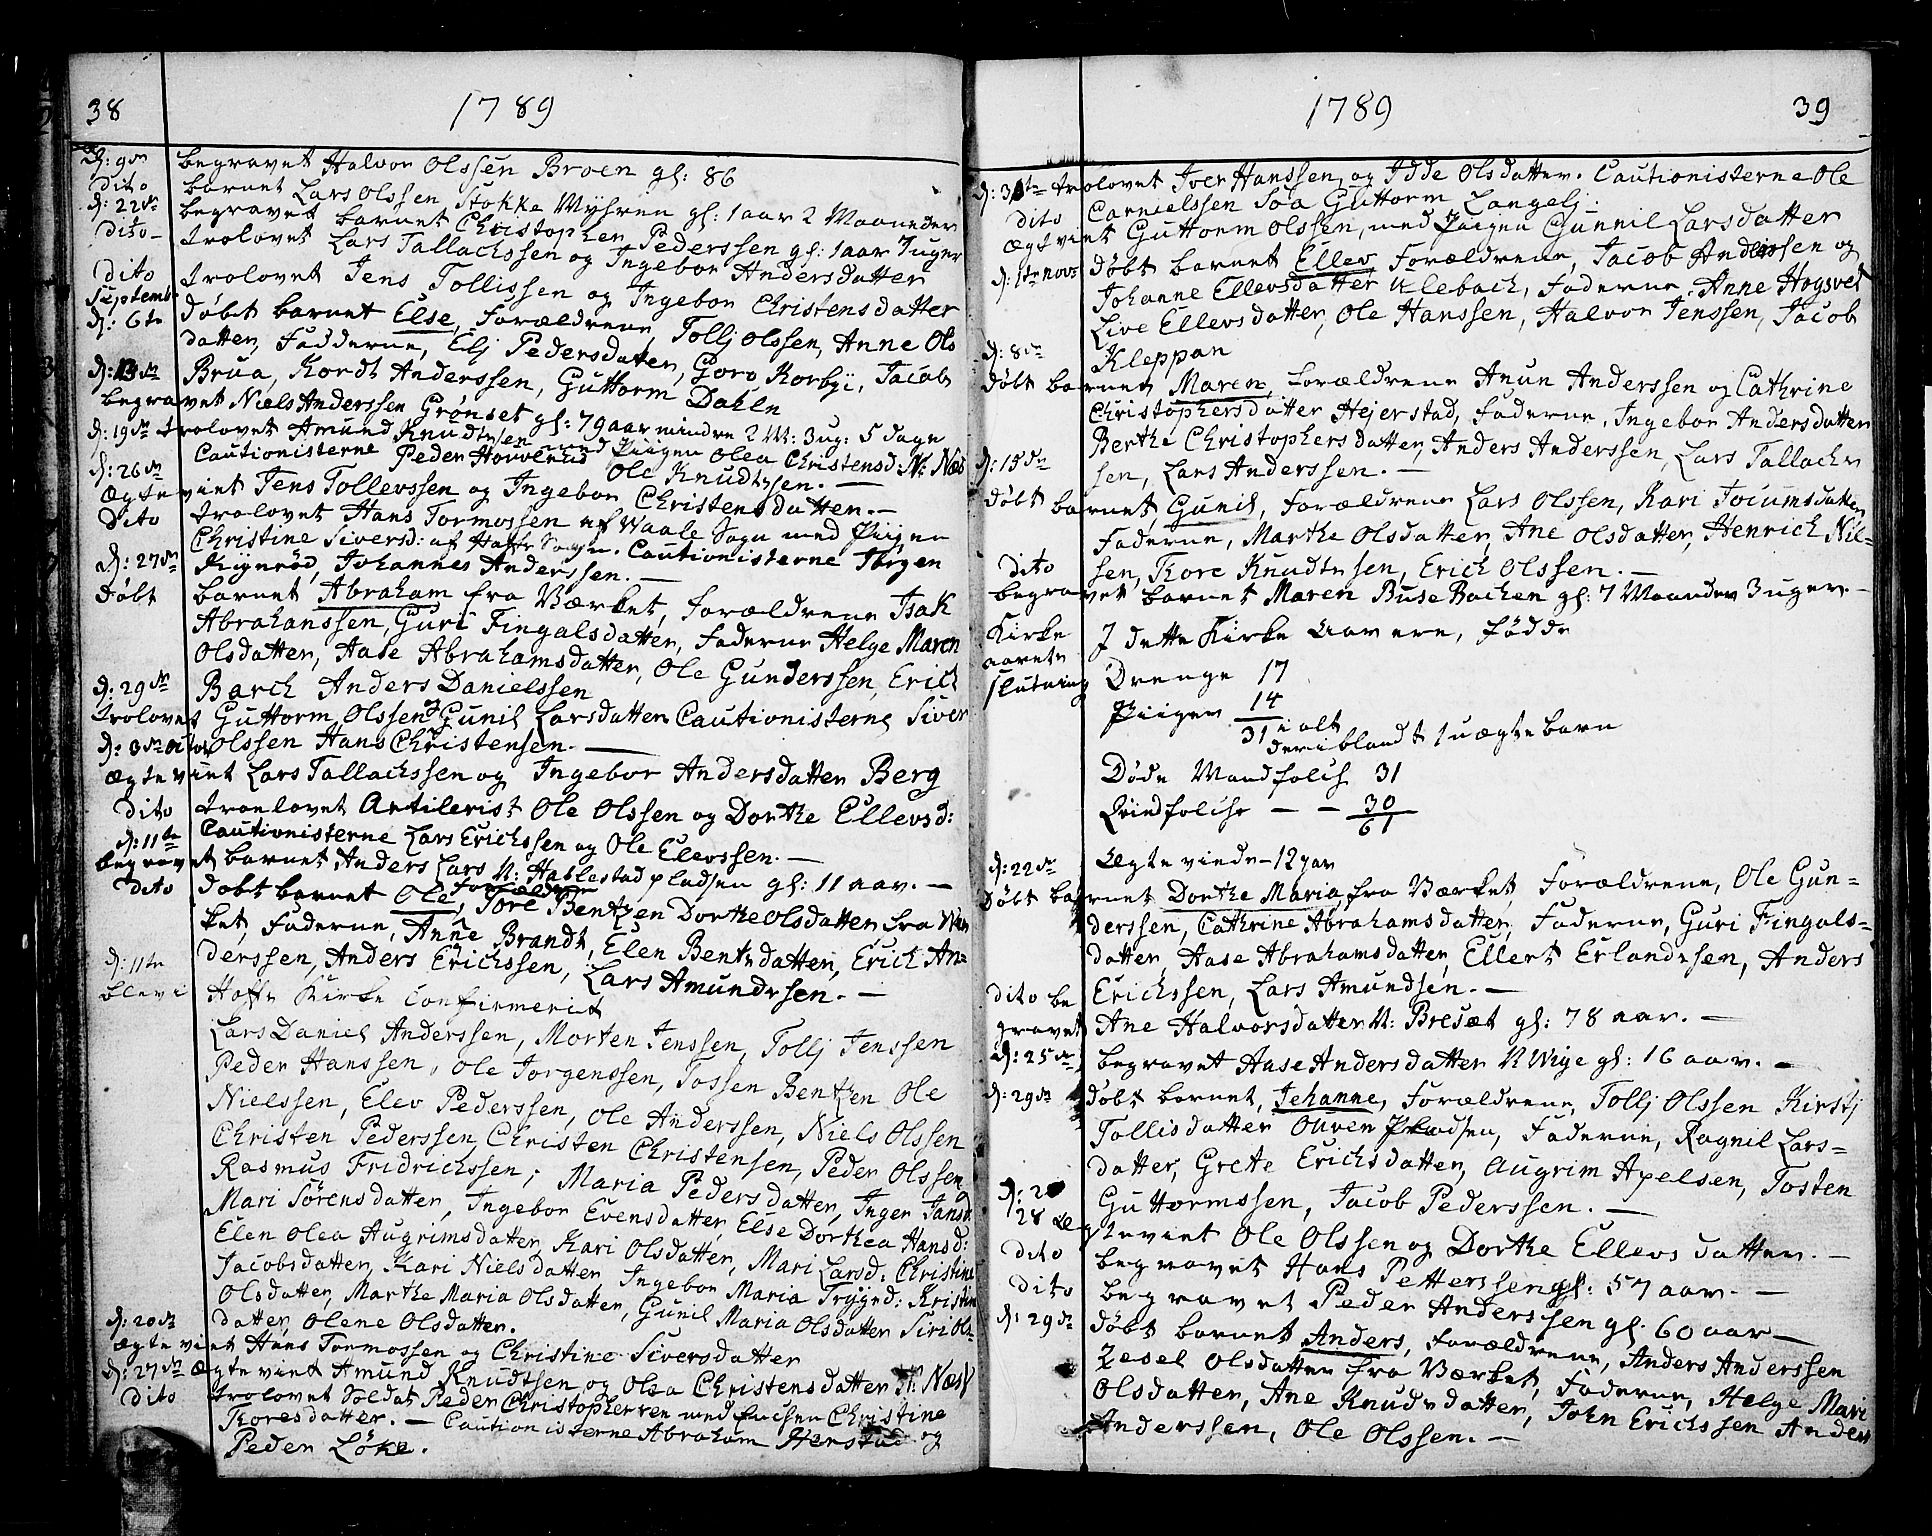 38
1789
d: 9de begravet Halvor Olssen Broen gl: 86
dito barnet Lars Olssen Stokke Myhren gl: 1 aar 2 Maaneder
d: 22de begravet barnet Christopher Pederssen gl: 1 aar 7 uger
dito trolovet Lars Tallachssen og Ingebor Andersdatter
dito trolovet Jens Tollissen og Ingebor Christensdatter
Septembr d: 6te døbt barnet Else, Forældrene, Tollj Olssen, Anne Ols
datter, Fadderne, Elj Pedersdatter, Goro Korbÿi, Jacob
Brua, Kordt Anderssen, Guttorm Dahle
d: 13de
begravet Niels Anderssen Grønset gl: 79 aar mindre 2 M: 3 ug: 5 dage
d: 19de trolovet Amund Knudtssen med Piigen Olea Christensd: N: Næs
Cautionisterne Peder Houvelrud Ole Knudtssen. —
d: 26de
Ægteviet Jens Tollevssen og Ingebor Christensdatter. —
dito trolovet Hans Tormossen af Waale Sogn med Piigen
Christine Siversd: af Haffs Sogn. Cautionisterne Jørgen
Kiynrød, Johannes Anderssen. —
d: 27de
Døbt barnet Abraham fra Værket, Forældrene Isak
Abrahanssen, Guri Fingalsdatter, Faderne Helge Maren
Olsdatter, Aase Abrahamsdatter, Ole Gunderssen, Erich
Barch Anders Danielssen
d: 29de
trolovet Guttorm Olssen og Gunil Larsdatter Cautionisterne Siver
Olssen Hans Christensen. —
d: 3de Octob
Ægteviet Lars Tallachssen og Ingebor Andersdatter Berg
dito troelovet Artilerist Ole Olssen og Dorthe Ellevsd:
Cautionisterne Lars Erichssen og Ole Elevssen. —
d: 11te
begravet barnet Anders Lars N: Hablestad pladsen gl: 11 aar. —
dito døbt barnet Ole, Forældrene Tore Bentzen Dorthe Olsdatter fra Vær
ket, Faderne, Anne Brandt, Elen Bentsdatter, Erich An-
derssen, Anders Erichssen, Lars Amundssen. —
d: 11te
blev i Haffs Kirke Confirmerit
Lars Daniel Anderssen, Morten Jenssen, Tollj Jenssen
Peder Hanssen, Ole Jorgenssen, Tossen Bentzen Ole
Nielssen, Elev Pederssen, Ole Anderssen, Niels Olssen
Christen Pederssen, Christen Christensen, Peder Olssen
Rasmus Fridrichssen; Maria Pedersdatter, Inger Jansd:
Mari Sörensdatter, Ingebor Evensdatter, Else Dorthea Hansd:
Elen Olea Augrimsdatter, Kari Olsdatter, Mari Larsd: Christine
Jacobsdatter, Kari Nielsdatter, Ingebor Maria Trygrd: Kristin
Olsdatter, Marthe Maria Olsdatter, Gunil Maria Olsdatter Siri Ols-
datter, Olene Olsdatter.
d: 20de
Ægteviet Hans Tormossen og Christine Siversdatter
d: 27de Ægteviet Amund Knudtsen og Olea Christensdatter N: Næss
dito trolovet Soldat Peder Christophersen med Enchen Christine
Toresdatter. — Cautionisterne Abraham Herstad og
Peder Löke.
1789
39
d: 31te trolovet Iver Hanssen, og Idde Olsdatter. Cautionisterne Ole
Carnielssen Soa Guttorm Langelj.
dito
Ægteviet Guttorm Olssen, med Piigen Gunnil Larsdatter
d: 1te Novr døbt barnet Ellev, Forældrene, Jacob Anderssen og
Johanne Ellevsdatter Klebach, Faderne, Anne Høgsvet
Live Ellevsdatter, Ole Hanssen, Halvor Jenssen, Jacob
Kleppan
d: 8de
døbt barnet Maren, Forældrene Anun Anderssen og Cathrine
Christophersdatter Hejerstad, Faderne, Ingebor Andersdatter
Berthe Christophersdatter, Anders Anderssen, Lars Tallach
sen, Lars Anderssen. —
d: 15de
døbt barnet, Gunil, Forældrene Lars Olssen, Kari Jocumsdatter
Faderne, Marthe Olsdatter, Ane Olsdatter, Henrich Nil-
sen, Tore Knudtssen, Erich Olssen. —
dito
begravet barnet Maren Buse Bachen gl: 7 Maaneder 3 uger. —
Kirke aarets slutning
I dette Kirke Aar ere, fødde
Drenge 17
Piiger 14
31 i alt
deriblandt 1 uægte barn
Døde Mandfolch 31
Qvindfolche — — 30
61
Ægte viede — 12 par
d: 22de
Døbt barnet Dorthe Maria, fra Værket, Forældrene, Ole Gun-
derssen, Cathrine Abrahamsdatter, Faderne, Guri Fingals-
datter, Aase Abrahamsdatter, Ellert Erlandssen, Anders
Erichssen, Lars Amundsen. —
dito be
gravet Ane Halvorsdatter N: Bresæt gl: 78 aar. —
d: 25de begravet Aase Andersdatter N Wiye gl: 16 aar. —
d: 29de døbt barnet, Johanne, Forældrene, Tollj Olssen Kirstj
Tollisdatter Ouren Pladsen, Faderne, Ragnil Lars-
datter, Grete Erichsdatter, Augrim Apelsen, Tosten
Guttormssen, Jacob Pederssen. —
d: 2
28 Ægteviet Ole Olssen og Dorthe Ellevsdatter. —
dito begravet Hans Petterssen gl: 57 aar. —
dito begravet Peder Anderssen gl: 60 aar —
d: 29de døbt barnet Anders, Forældrene, Anders Anderssen
Zesel Olsdatter fra Værket, Faderne, Helge Mari
Olsdatter, Ane Knudsdatter, John Erichssen Anders
Anderssen, Ole Olssen. —